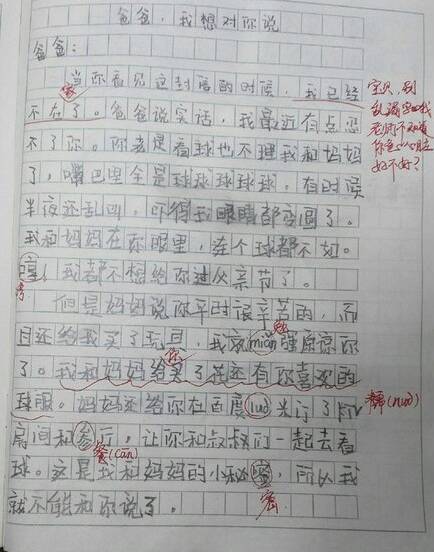 爸爸,我想对你说
爸爸:
当你看见这封信的时候,我已经
不在了。爸爸说实话,我最近有点忍
不了你。你老是看球也不理我和妈妈
了,嘴巴里全是球球球球球,有时候
半夜还乱叫,吓得我眼睛都变圆了。
我和妈妈在你眼里,连个球都不如。
哼!我都不想给你过父亲节了。
但是妈妈说你平时很辛苦的,而
且还给我买了玩具,我就miǎn强原谅你
了。我和妈妈给买了花还有你喜欢的
球服。妈妈还给你在百度nuò米订了
房间和参厅,让你和叔叔们一起去看
球。这是我和妈妈的小秘密,所以我
就不能和你说了。
家
宝贝,别
老师
好不好?
勉
你
糯(nuò)
餐(cān)
密